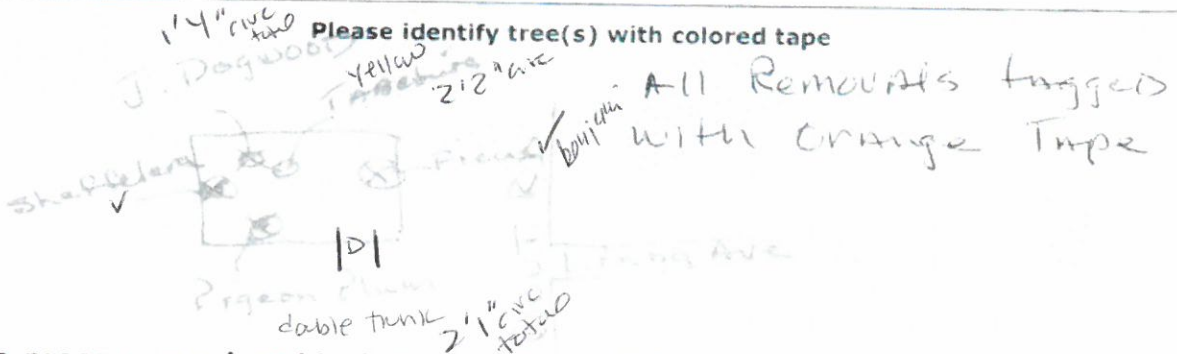 1'4" circ total
Please identify tree(s) with colored tape
J. Dogwood
yellow
2'2" circ
All Removals tagged
With Orange Tape
✓ benjamin
Ficus
✓
✓
|D|
Pigeon Plum
double trunk 2'1" circ total
Ave